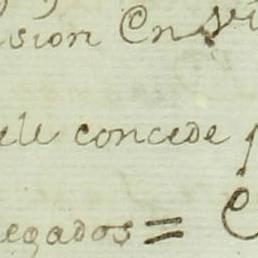 sion En vi
ele concede
egados =